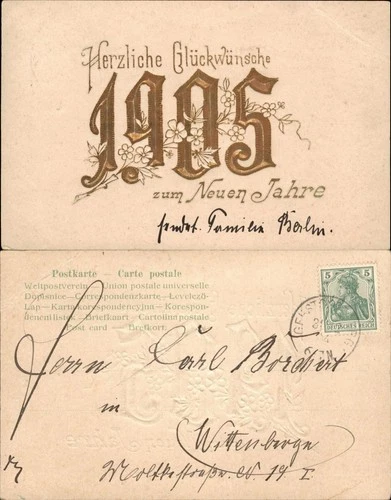 Herzliche Glückwünsche
1905
zum Neuen Jahre
sendet. Familie Berlin.
Postkarte – Carte postale
Weltpostverein – Union postale universelle
Dopisnice – Correspondenzkarte – Levelező-
Lap – Karta korespondencyjna – Korespon-
denčni listek – Briefkaart – Cartolina postale
Post card – Brefkort.
5 5
DEUTSCHES REICH
Herrn Carl Borchert
in
Wittenberge
Moltkestraße No 19 I